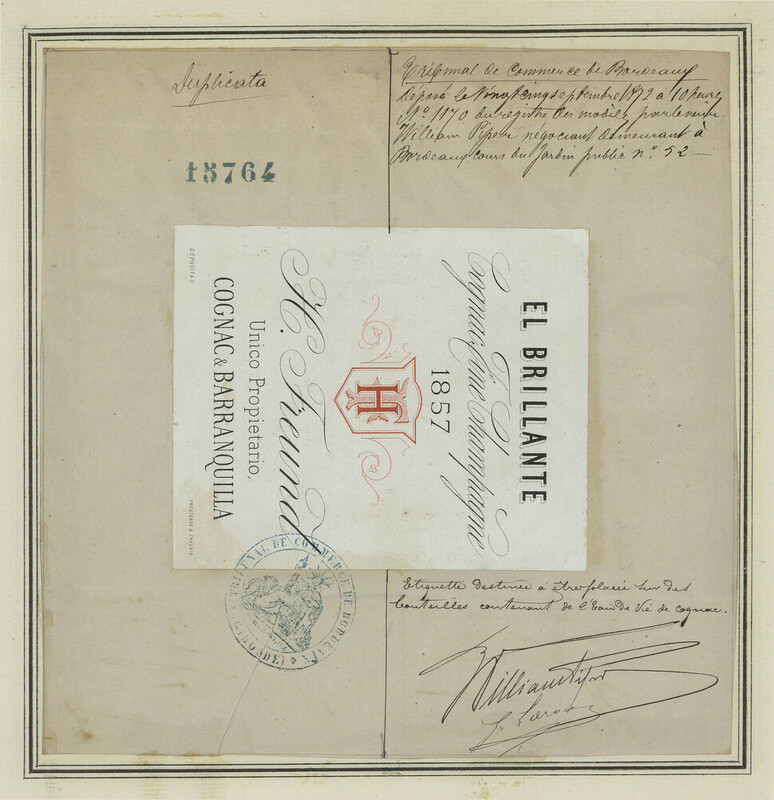 Duplicata
15764
Tribunal de Commerce de Bordeaux
Déposé le Vingt cinq septembre 1872 à 10 heures
N° 1170 du registre des modèles, par le sieur
William Piper négociant demeurant à
Bordeaux cours du Jardin public n° 52
EL BRILLANTE
Cognac, Fine Champagne
1857
H
H. Freund
Unico Propietario,
COGNAC & BARRANQUILLA
DEPOSITADO
TRIBUNAL DE COMMERCE DE BORDEAUX
(GIRONDE)
Etiquette destinée à être placée sur des
bouteilles contenant de l'Eau de Vie de Cognac.
William Piper